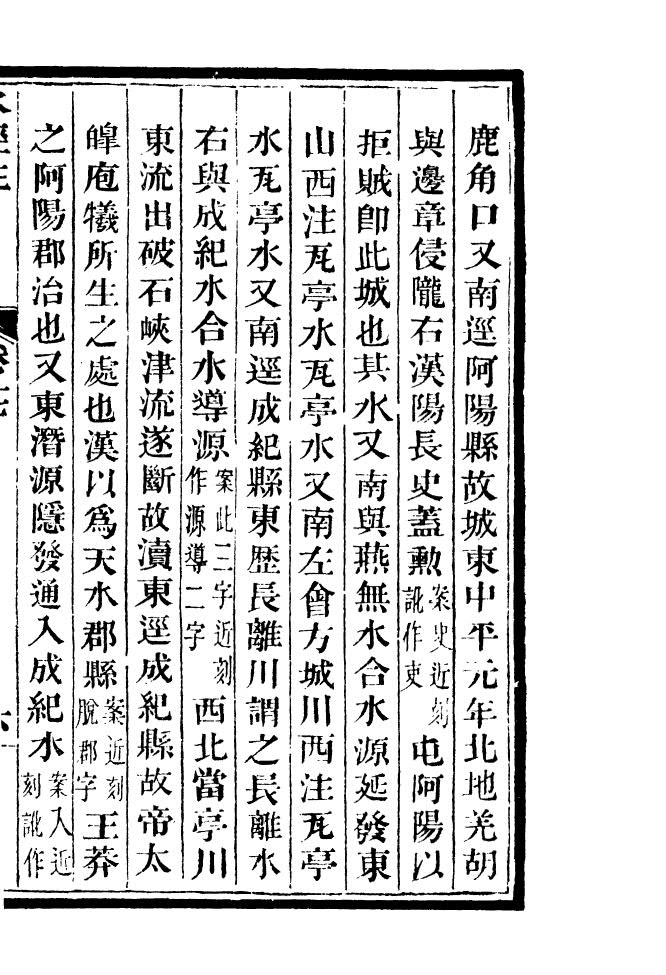 鹿角口又南逕阿陽縣故城東中平元年北地羌胡
與邊章侵隴右漢陽長史蓋勲案史近刻訛作吏屯阿陽以
拒賊卽此城也其水又南與燕無水合水源延發東
山西注瓦亭水瓦亭水又南左會方城川西注瓦亭
水瓦亭水又南逕成紀縣東歴長離川謂之長離水
右與成紀水合水導源案此三字近刻作源導二字西北當亭川
東流出破石峽津流遂斷故瀆東逕成紀縣故帝太
皥庖犧所生之處也漢以爲天水郡縣案近刻脫郡字王莽
之阿陽郡治也又東潛源隱發通入成紀水案入近刻訛作
水經注
卷十七
六